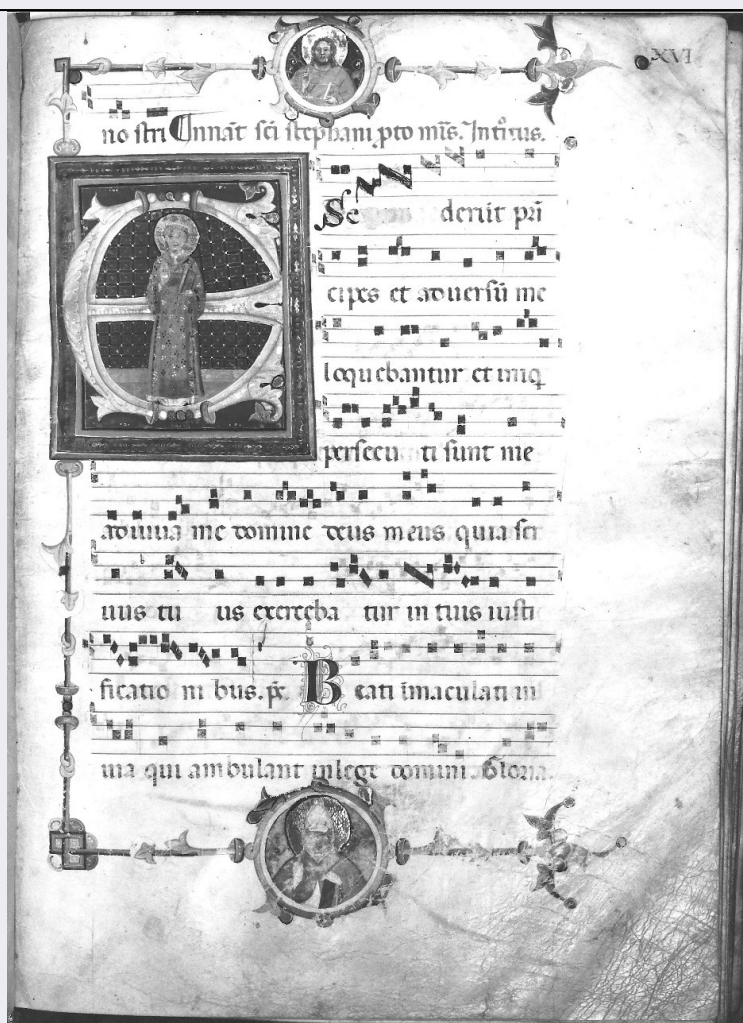 XVI
no stri In nat̄ sc̄i stephani p̄to m̄is. Introitus.
Se derūt pri
cipes et aduersū me
loquebantur et iniq
persecu ti sunt me
adiuua me domine deus meus quia ser
uus tu us exerceba tur in tuis iusti
ficatio ni bus. p̄s. B eati īmaculati in
uia qui ambulant in lege domini. Gloria.